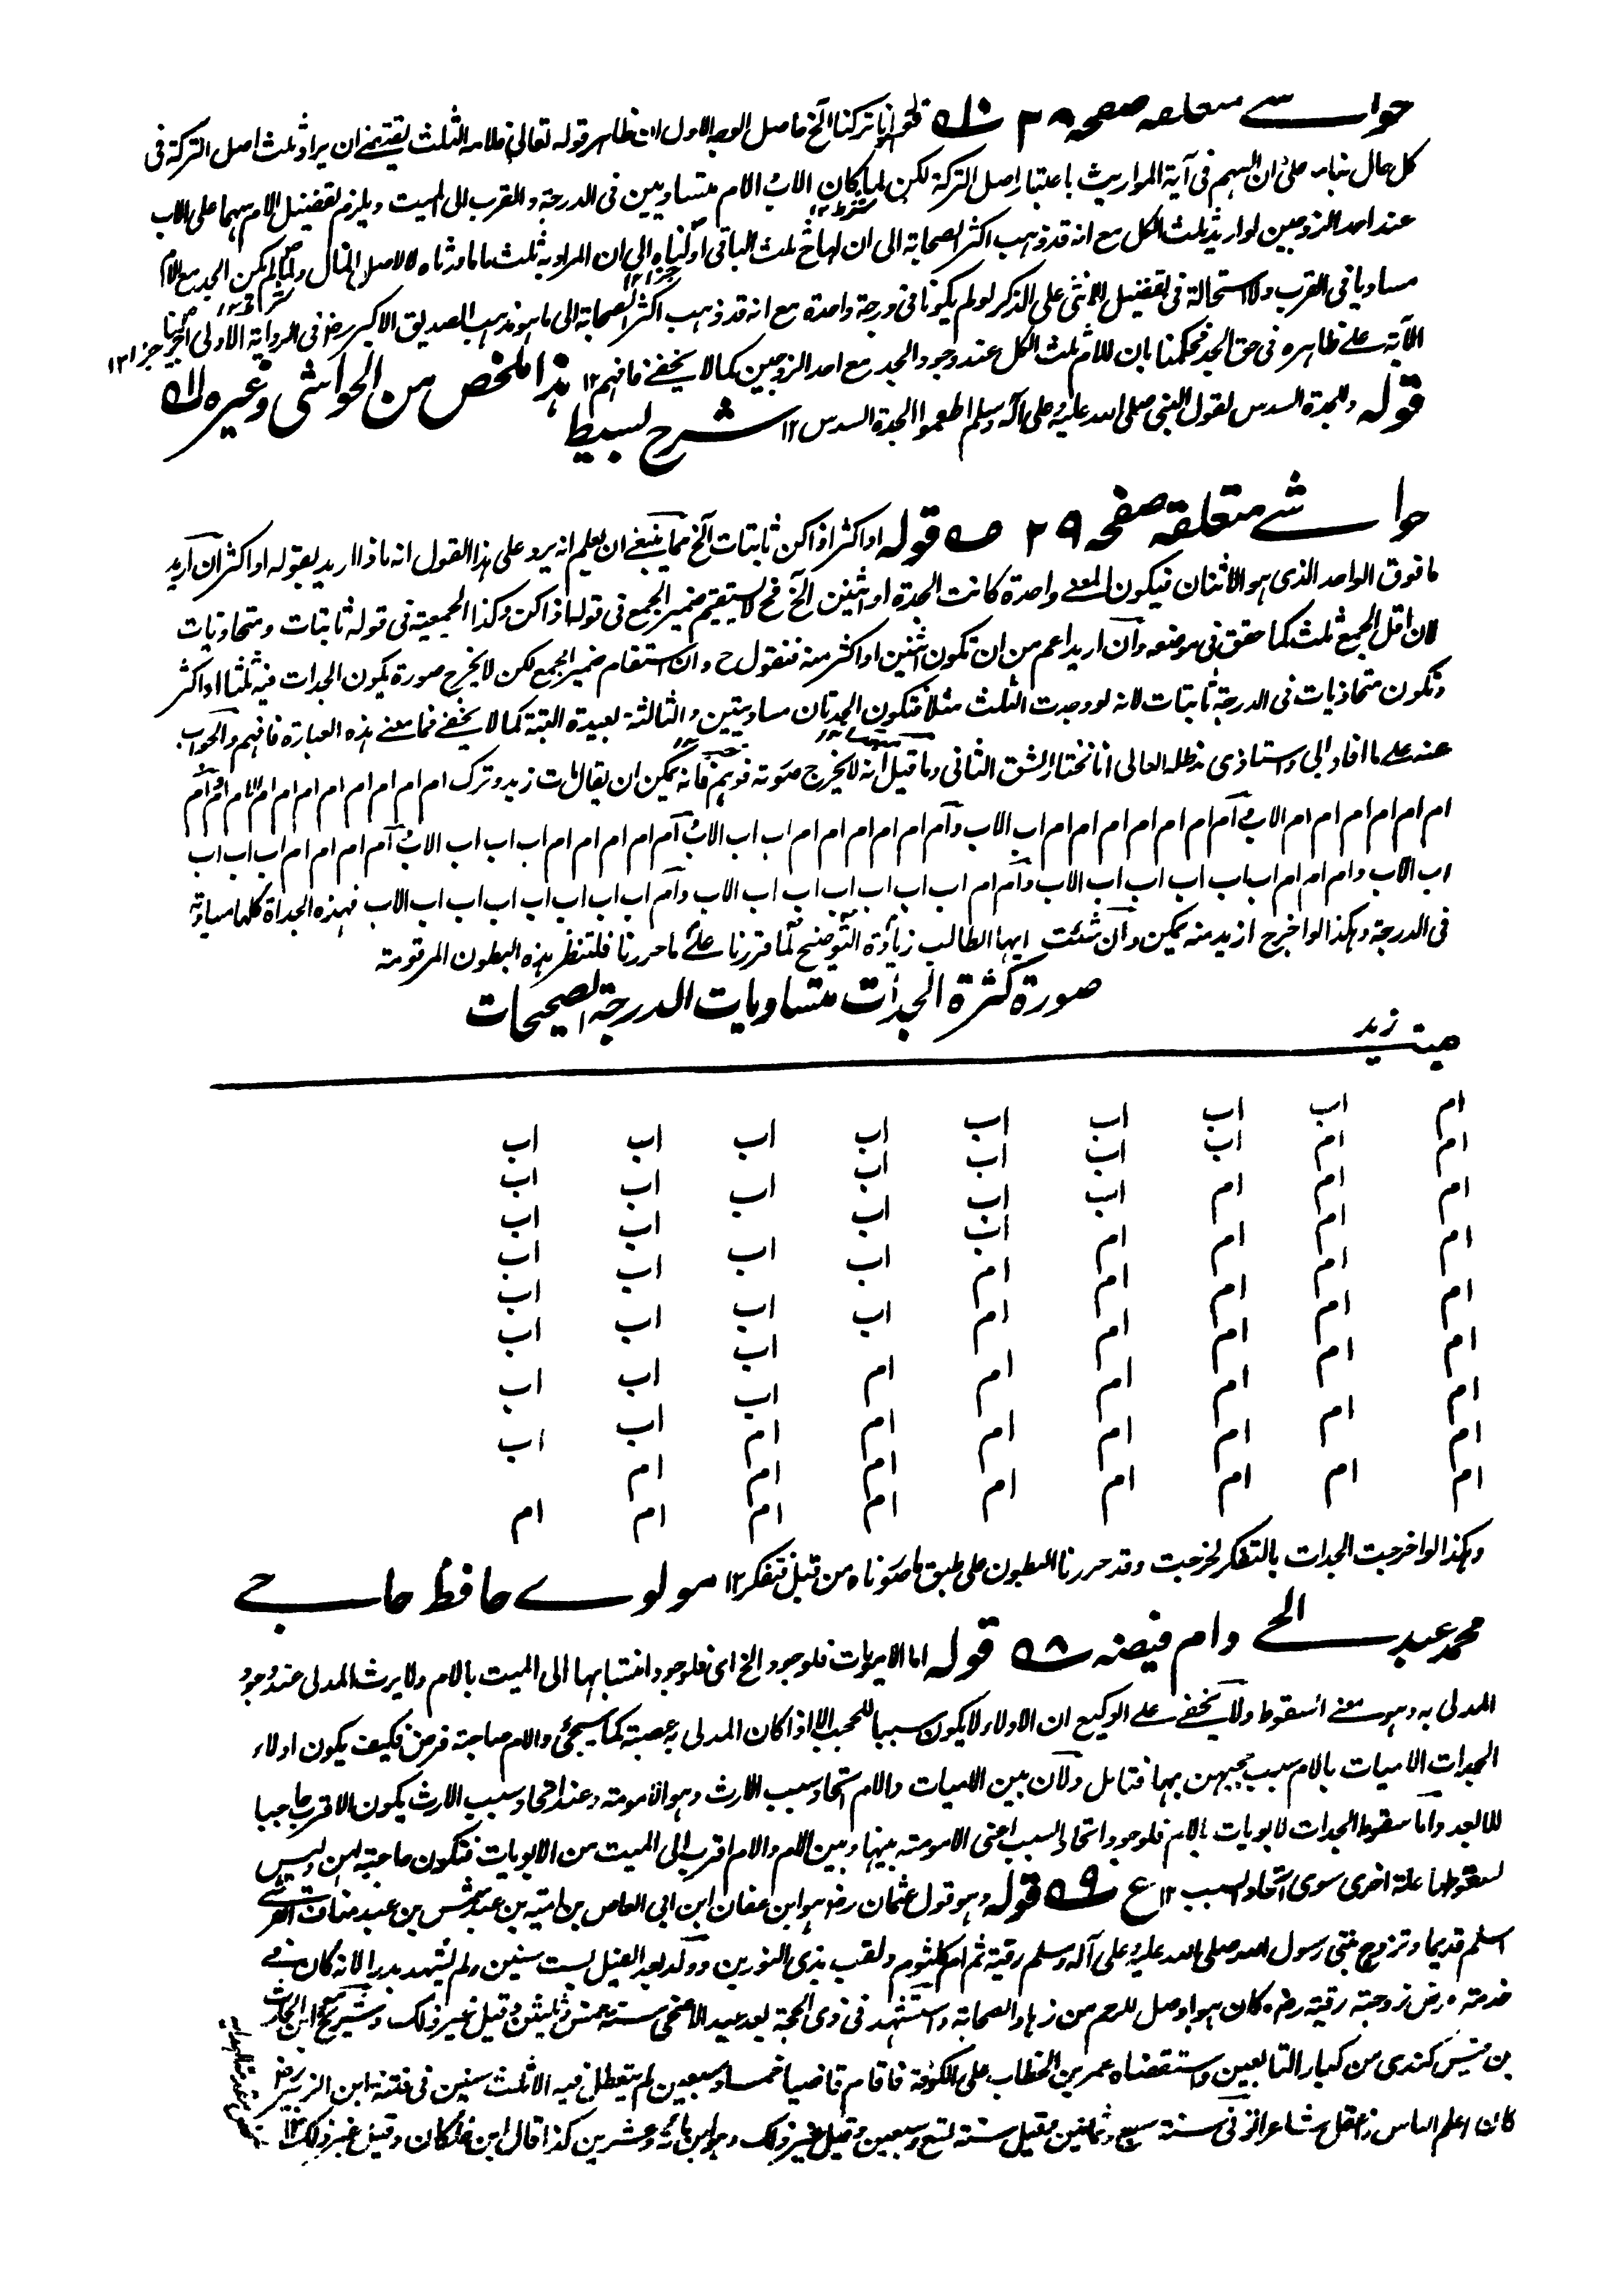 حواشے متعلقه صفحه ٢٨ قوله انا تركنا الخ حاصل الوجه الاول ان ظاهر قوله تعالى فلامه الثلث يقتضے ان يراد ثلث اصل التركة فى
كل حال بناء على ان السهم فى آية المواريث باعتبار اصل التركة لكن لما كان الاب والام متساويين فى الدرجة والقرب الى الميت ويلزم تفضيل الام سهما على الاب
عند احد الزوجين لو اريد ثلث الكل مع انه قد ذهب اكثر الصحابة الى ان لها ح ثلث الباقى اولناه الى ان المراد به ثلث ما ورثاه لا الاصل المال ولما لم يكن الجد مع الام
مساويا فى القرب ولا استحالة فى تفضيل الانثى على الذكر لو لم يكونا فى درجة واحدة مع انه قد ذهب اكثر الصحابة الى ما هو مذهب الصديق الاكبر رض فى الرواية الاولى اجرينا
الآية على ظاهره فى حق الجد فحكمنا بان للام ثلث الكل عند وجود الجد مع احد الزوجين كما لا يخفے فافهم ١٢ هذا ملخص من الحواشى وغيره
قوله وللجدة السدس لقول النبى صلى الله عليه وعلى آله وسلم اطعموا الجدة السدس ١٢ شرح بسيط
حواشے متعلقه صفحه ٢٩ قوله او اكثر اذا كن ثابتات الخ مما ينبغے ان يعلم انه يرد على هذا القول انه ماذا اريد بقوله او اكثر ان اريد
ما فوق الواحد الذى هو الاثنان فيكون المعنے واحدة كانت الجدة او اثنين الخ فح لا يستقيم ضمير الجمع فى قوله اذا كن وكذا الجمعية فى قوله ثابتات ومتحاذيات
لان اقل الجمع ثلث كما حقق فى موضعه وان اريد اعم من ان تكون اثنين او اكثر منه فنقول ح وان استقام ضمير الجمع لكن لا يخرج صورة يكون الجدات فيه ثلثا او اكثر
وتكون متحاذيات فى الدرجة ثابتات لانه لو وجدت الثلث مثلا فتكون الجدتان مساويتين والثالثة بعيدة البتة كما لا يخفے فما معنے هذه العبارة فافهم والجواب
عنه على ما افاد ابى واستاذى مد ظله العالى انا نختار الشق الثانى وما قيل انه لا يخرج صوته فوهم فانه يمكن ان يقال مات زيد وترك ام ام ام ام ام ام ام ام الام وام ام
ام ام ام ام ام ام الاب وام ام ام ام ام ام ام اب الاب وام ام ام ام ام ام اب اب الاب وام ام ام ام ام اب اب اب الاب وام ام ام ام اب اب اب
اب الاب وام ام ام اب اب اب اب اب الاب وام ام اب اب اب اب اب اب الاب وام اب اب اب اب اب اب اب الاب فهذه الجداة كلها مساوية
فى الدرجة وهكذا لو اخرج ازيد منه يمكن وان شئت ايها الطالب زيادة التوضيح لما قررنا على ما حررنا فلتنظر هذه البطون المرقومة
صورة كثرة الجدات متساويات الدرجة الصحيحات
ميت زيد
ام اب اب اب اب اب اب اب اب
ام ام اب اب اب اب اب اب اب
ام ام ام اب اب اب اب اب اب
ام ام ام ام اب اب اب اب اب
ام ام ام ام ام اب اب اب اب
ام ام ام ام ام ام اب اب اب
ام ام ام ام ام ام ام اب اب
ام ام ام ام ام ام ام ام اب
ام ام ام ام ام ام ام ام ام
وهكذا لو اخرجت الجدات بالتفكر لخرجت وقد حررنا البطون على طبق ما صورناه من قبل فتفكر ١٢ مولوے حافظ حاجے
محمد عبد الحے دام فيضه قوله اما الاميات فلوجود الخ اى فلوجود انتسابها الى الميت بالام ولا يرث المدلى عند وجود
المدلى به وهو معنے السقوط ولا يخفے على الوكيع ان الاولاء لا يكون سببا للحجب الا اذا كان المدلى به عصبة كما سيجئ والام صاحبة فرض فكيف يكون اولاء
الجدات الاميات بالام سبب حجبهن بها فتامل ولان بين الاميات والام اتحاد سبب الارث وهو الامومة وعند اتحاد سبب الارث يكون الاقرب حاجبا
للابعد واما سقوط الجدات الابويات بالام فلوجود اتحاد السبب اعنى الامومة بينها وبين الام والام اقرب الى الميت من الابويات فتكون حاجبة لهن وليس
لسقوطها علة اخرى سوى اتحاد السبب ١٢ ع قوله وهو قول عثمان رض هو ابن عفان ابن ابى العاص بن امية بن عبد شمس بن عبد مناف القرشے
اسلم قديما وتزوج بنتى رسول الله صلى الله عليه وعلى آله وسلم رقية ثم ام كلثوم ولقب بذى النورين وولد بعد الفيل بست سنين ولم يشهد بدرا لانه كان فے
خدمة مرض زوجته رقية رض وكان هو اوصل للرحم من زهاد الصحابة واستشهد فى ذى الحجة بعد عيد الاضحى سنة خمس وثلثين وقيل غير ذلك وشريح ابن الحارث
بن قيس كندى من كبار التابعين واستقضاه عمر بن الخطاب على الكوفة فاقام قاضيا خمسا وسبعين لم يتعطل فيه الا ثلث سنين فى فتنة ابن الزبير رض
كان اعلم الناس ذا عقل وشاعرا توفى سنة سبع وثمانين وقيل سنة تسع وسبعين وقيل غير ذلك وهو ابن مائة وعشرين كذا قال ابن خلكان وقيل غير ذلك ١٢